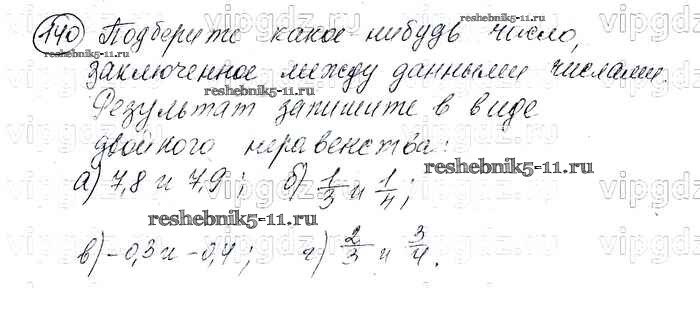 140 Подберите какое-нибудь число, reshebnik5-11.ru
заключенное между данными числами.
reshebnik5-11.ru
Результат запишите в виде
двойного неравенства:
reshebnik5-11.ru
а) 7,8 и 7,9; б) 1/3 и 1/4;
reshebnik5-11.ru
в) -0,3 и -0,4; г) 2/3 и 3/4.
vipgdz.ru